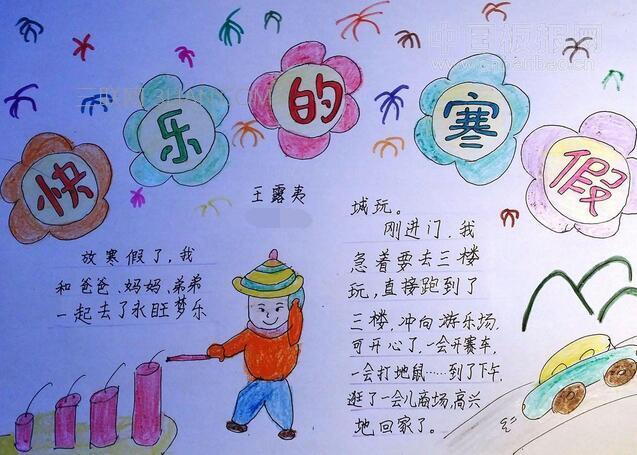 快乐的寒假
王露夷
放寒假了，我
和爸爸、妈妈、弟弟
一起去了永旺梦乐
城玩。
刚进门，我
急着要去三楼
玩，直接跑到了
三楼，冲向游乐场，
可开心了，一会开赛车，
一会打地鼠……到了下午，
逛了一会儿商场，高兴
地回家了。
中国板报网